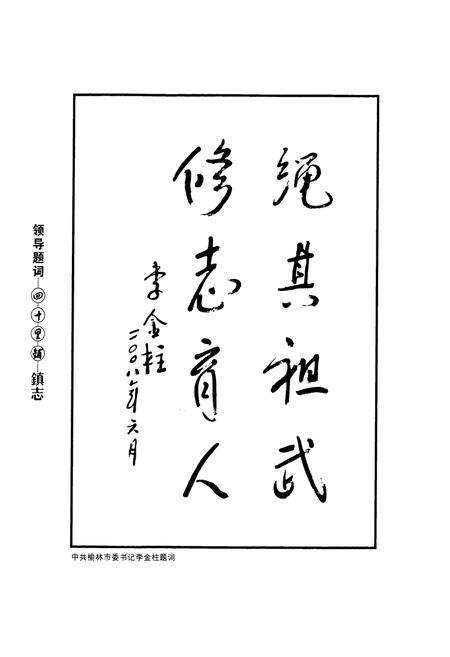 绳其祖武
修志育人
李金柱
二〇〇八年六月
领导题词—四十里铺—鎮志
中共榆林市委书记李金柱题词